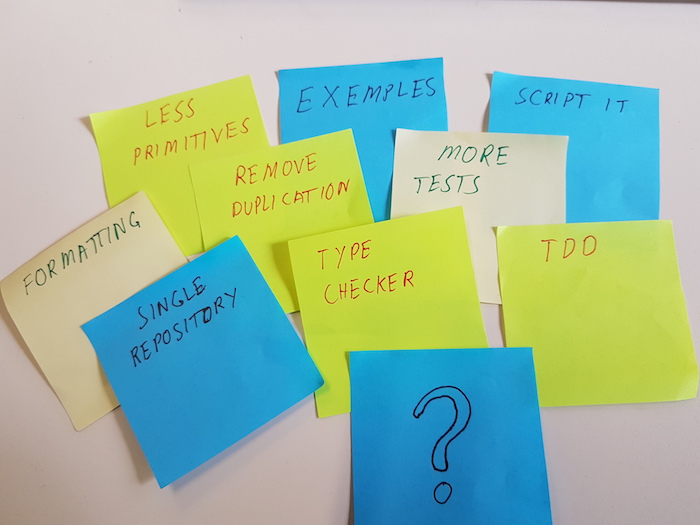 LESS
PRIMITIVES
EXEMPLES
SCRIPT IT
REMOVE
DUPLICATION
MORE
TESTS
FORMATTING
SINGLE
REPOSITORY
TYPE
CHECKER
TDD
?